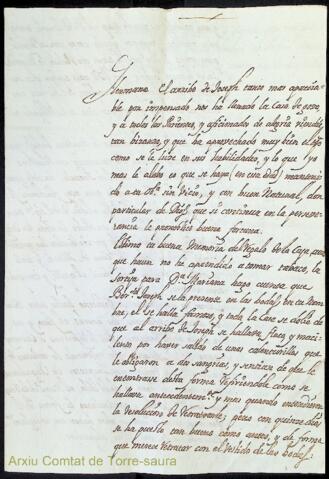 Hermana el arribo de Joseph tanto mas apreciable
por impensado nos ha llenado la Casa de gozo,
y à todos los Parientes, y aficionados de alegria
tan bizarro, y que ha aprovechado muy bien el
como se le luce en sus habilidades, y lo que yo
mas le alabo es que se haya (en essa Ciud)
sin vicio, y con buen Natural, don
particular de Dios, que si continua en la perseverancia
le pronostico buena fortuna.
Estimo tu buena Memoria del Regalo de la Caxa
que haun no ha aprendido a tomar tabaco, la
Sortija para D.ª Mariana hago cuenta que
Joseph se la presente en las bodas en tu Nombre,
el se halla famoso, y toda la Casa se dolia de
que al arribo de Joseph se hallava flaco, y macilento
por haver salido de unas calenturillas que
le obligaron a dos sangrias, y sentian q.e le
encontrase desta forma
hallava antecedentem.te y mas quando entendieron
la resolucion de pero con quinze dias
se ha puesto tan bueno como antes, y de forma
que merece con el vestido de las bodas
Arxiu Comtat de Torre-saura